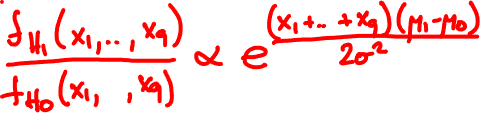 f_{H_1}(x_1,..,x_9) / f_{H_0}(x_1, ,x_9) ∝ e^{(x_1+..+x_9)(μ_1-μ_0) / 2σ^2}